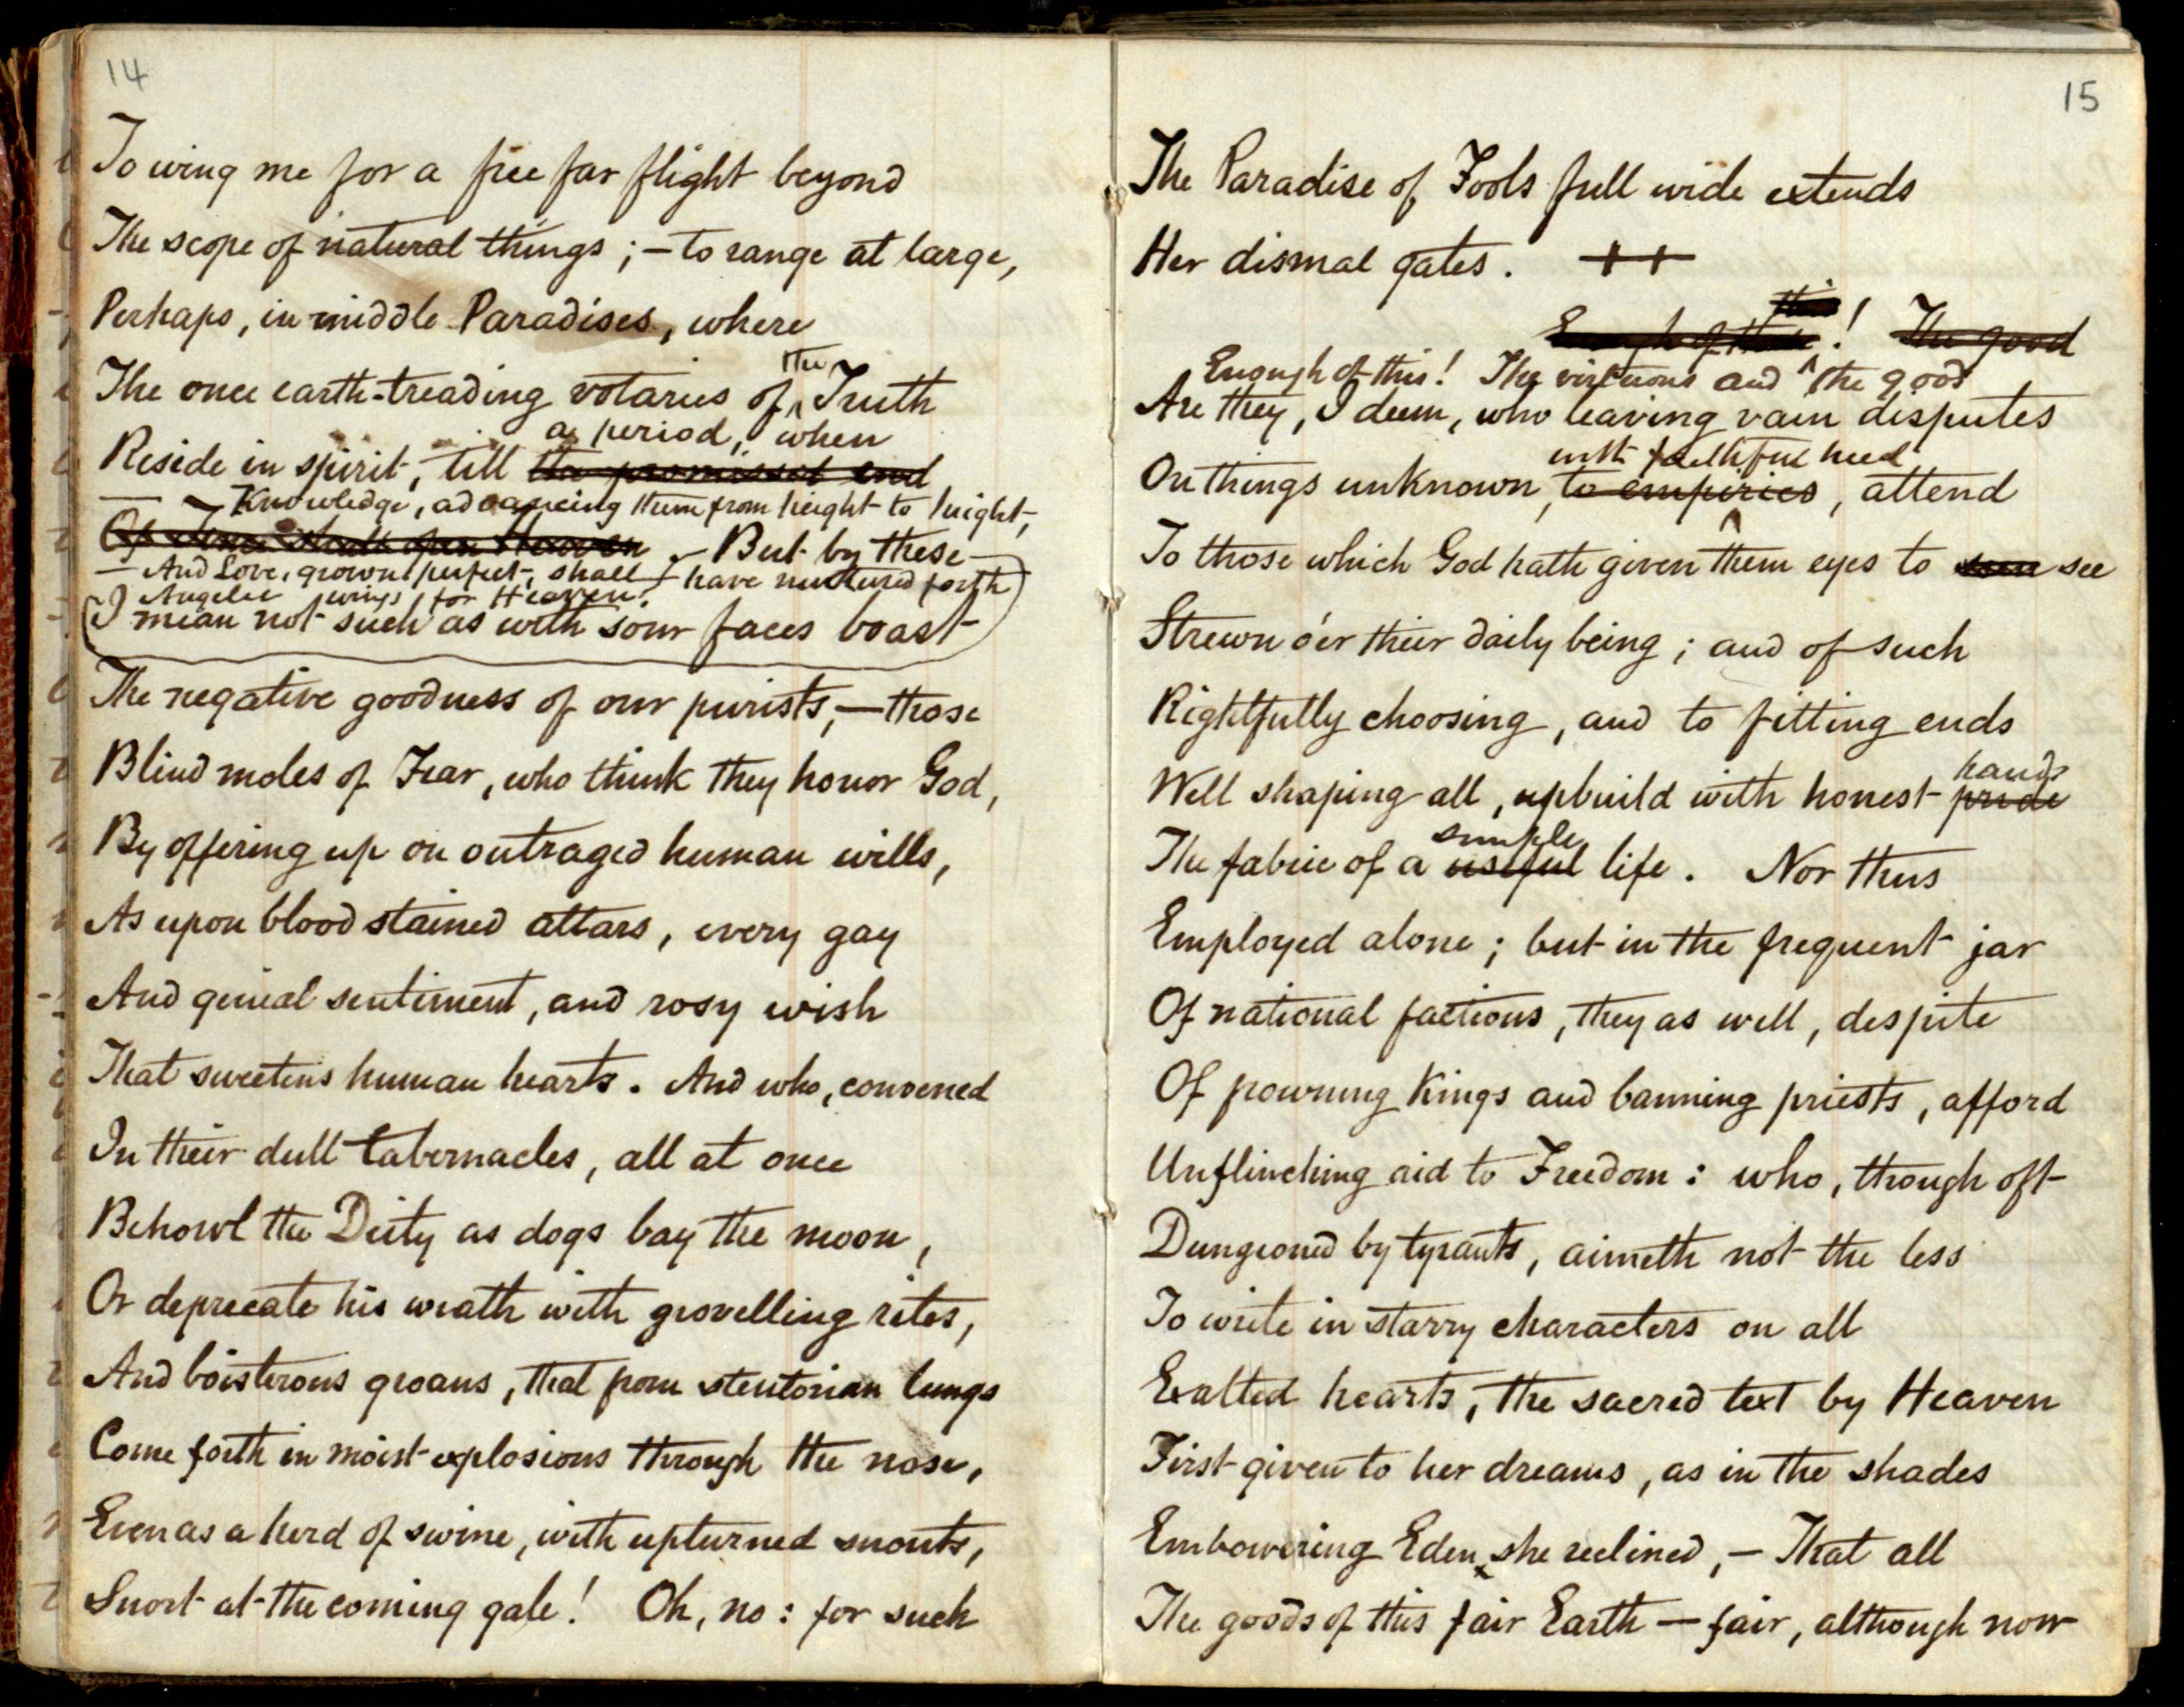 14
To wing me for a free far flight beyond
The scope of natural things ; – to range at large,
Perhaps, in middle Paradises, where
the
The once earth-treading votaries of Truth
a period, when
Reside in spirit, till the promised end
Knowledge, advancing them from height to height,
Of Time shall open Heaven . – But by these
– And Love, grown perfect, shall have nurtured forth
Angelic wings for Heaven.
I mean not such as with sour faces boast
The negative goodness of our purists, – those
Blind moles of Fear, who think they honor God,
By offering up on outraged human wills,
As upon blood stained altars, every gay
And genial sentiment, and rosy wish
That sweetens human hearts. And who, convened
In their dull tabernacles, all at once
Behowl the Deity as dogs bay the moon,
Or deprecate his wrath with grovelling rites,
And boisterous groans, that from stentorian lungs
Come forth in moist explosions through the nose,
Even as a herd of swine, with upturned snouts,
Snort at the coming gale! Oh, no : for such
15
The Paradise of Fools full wide extends
Her dismal gates. ++
this
Enough of these ! The good
Enough of this! The virtuous and the good
Are they, I deem, who leaving vain disputes
with faithful heed
On things unknown, to empirics, attend
To those which God hath given them eyes to see
Strewn o'er their daily being ; and of such
Rightfully choosing, and to fitting ends
hands
Well shaping all, upbuild with honest pride
simple
The fabric of a useful life. Nor thus
Employed alone ; but in the frequent jar
Of national factions, they as well, despite
Of frowning Kings and banning priests, afford
Unflinching aid to Freedom : who, though oft
Dungeoned by tyrants, aimeth not the less
To write in starry characters on all
Exalted hearts, the sacred text by Heaven
First given to her dreams, as in the shades
Embowering Eden, she reclined, – That all
The goods of this fair Earth – fair, although now